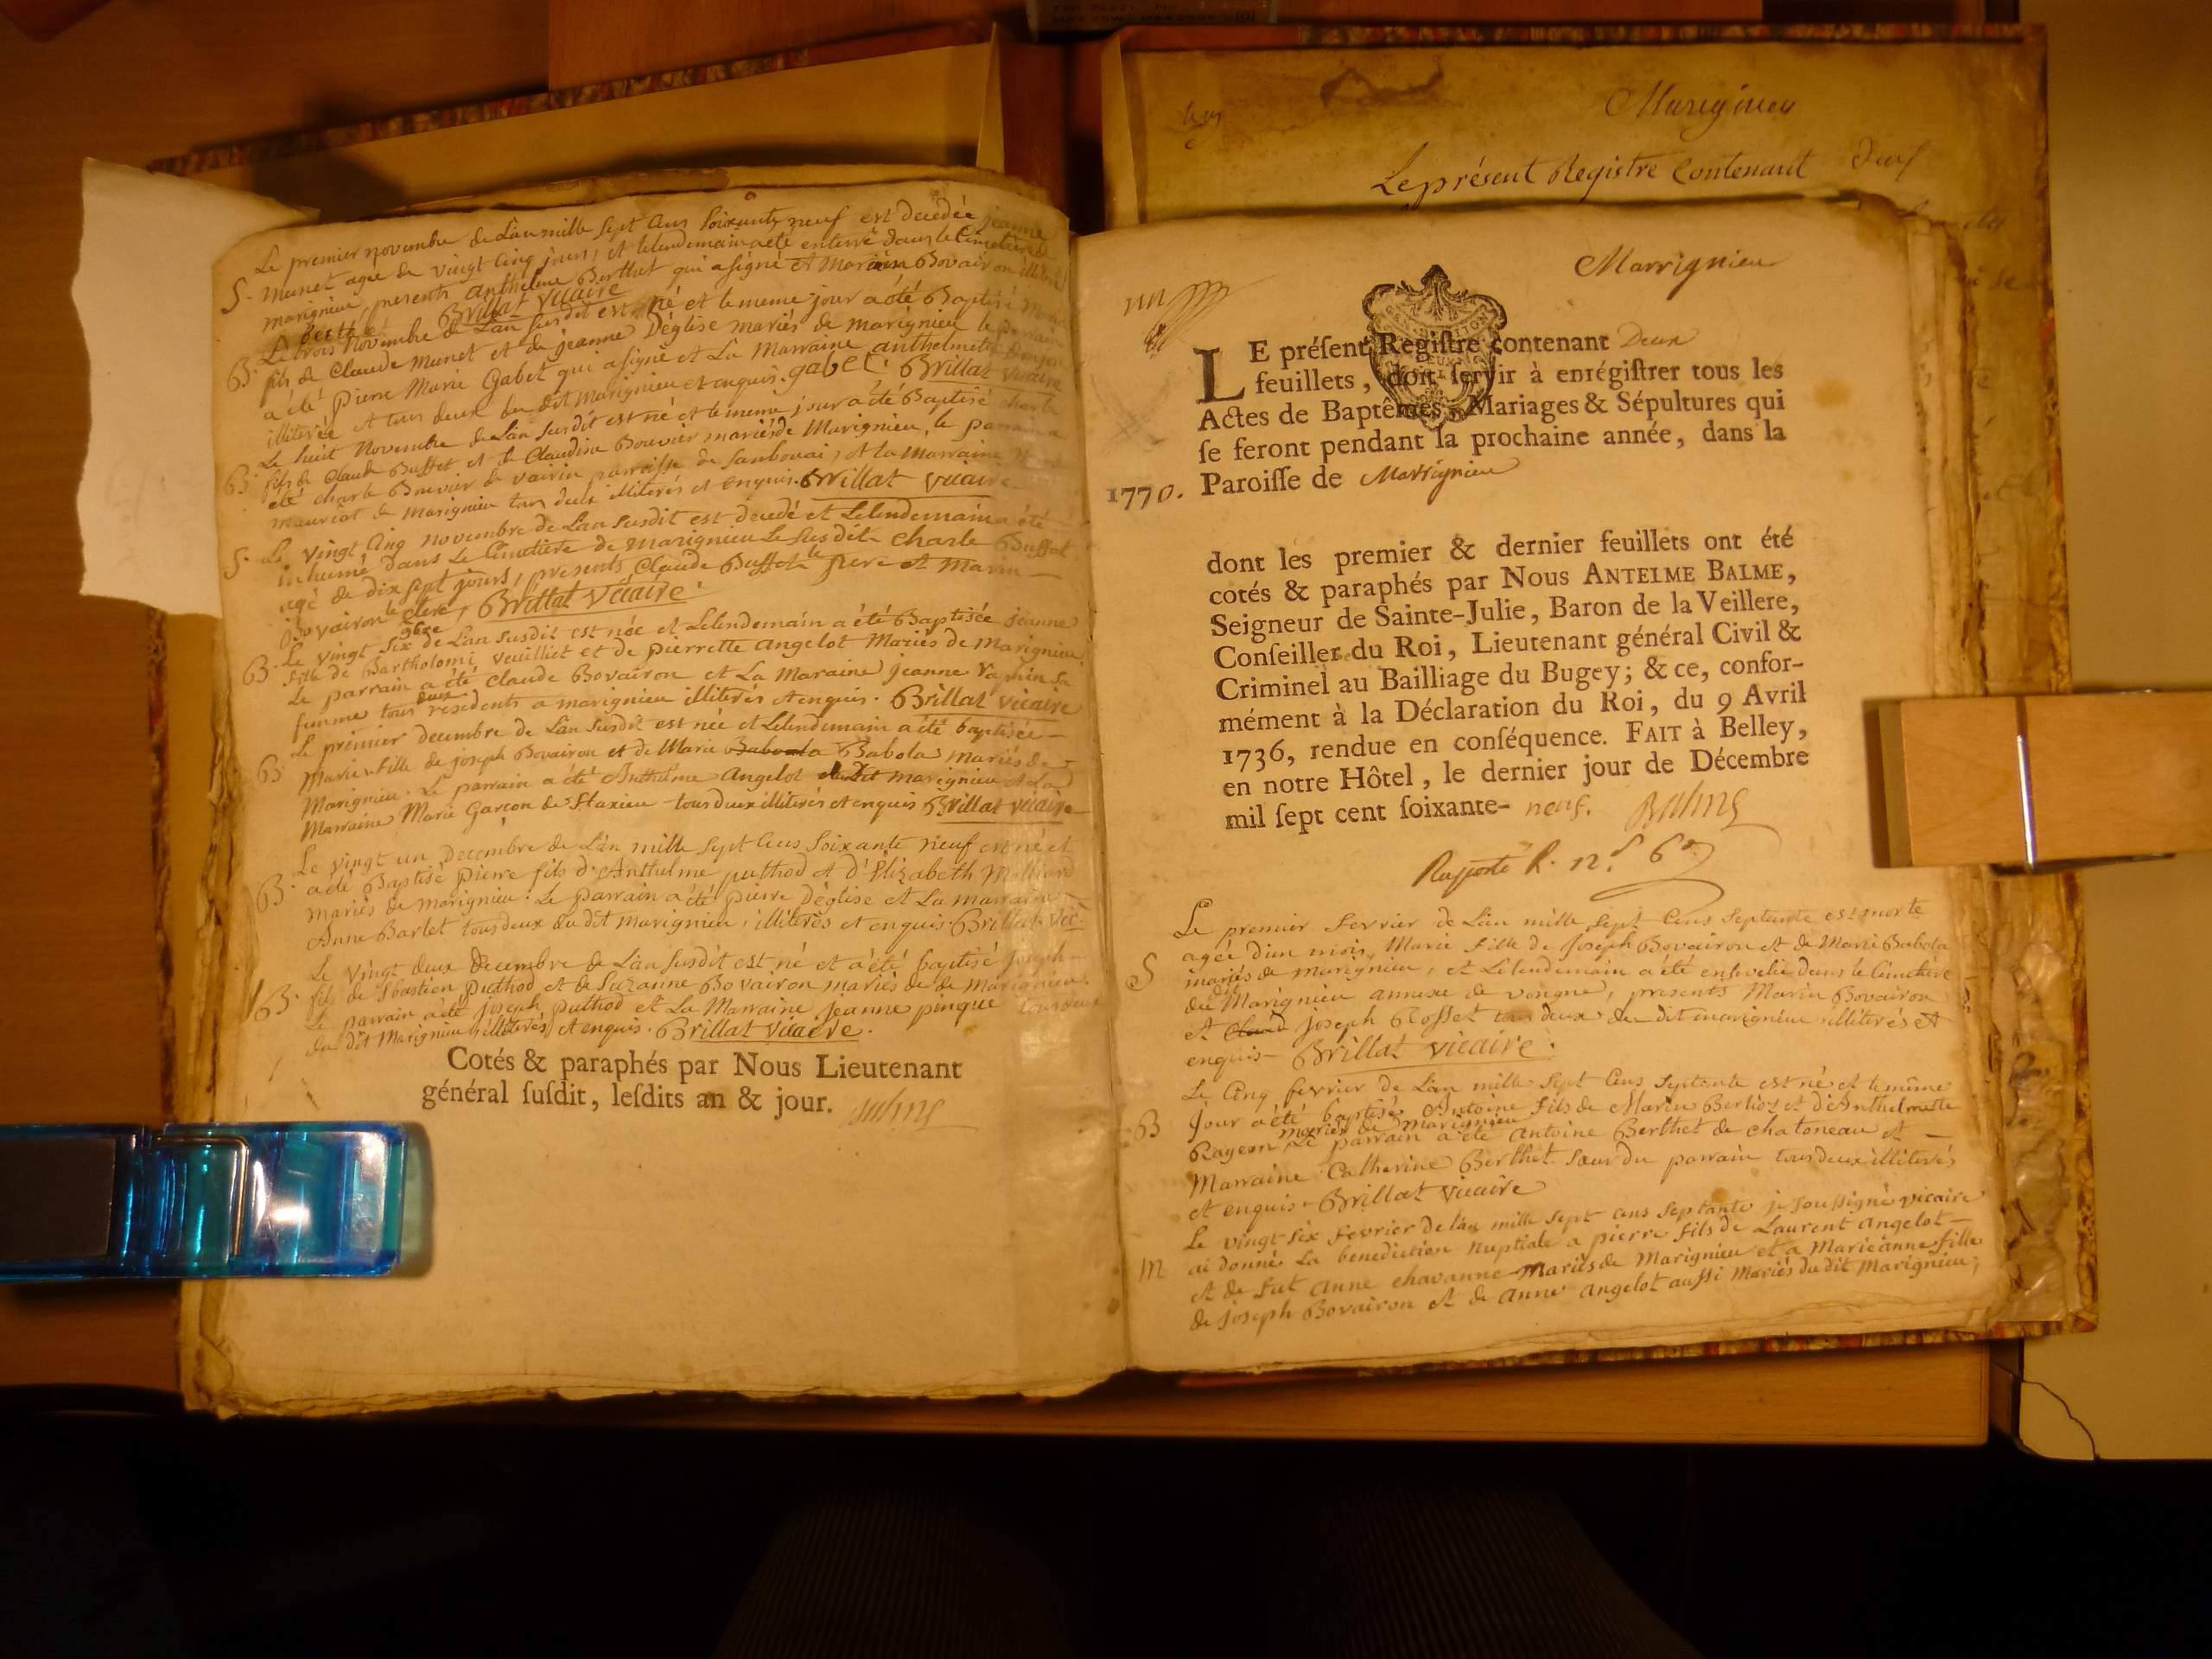 Le premier novembre de L'an mille sept Cens soixante neuf est decedée jeanne
S. Munet agée de vingt cinq jours, et lelendemain a eté enterré dans le Cimetiere de
marignieu, presents anthelme Berthet qui a signé et Marin Bovairon illiteré
Berthet Brillat vicaire
Le trois Novembre de L'an susdit est né et le meme jour a été Baptisé
B. fils de Claude Munet et de jeanne Déglise mariés de marignieu le parrain
a été pierre Marie Gabet qui a signé et La Marraine anthelmette
illiterée et tous deux du dit Marignieu et enquis. gabet. Brillat vicaire
Le huit Novembre de L'an susdit est né et le meme jour a été Baptisé charle
B. fils de Claude Buffet et de Claudine Bouvier mariés de Marignieu, le parrain a
été charle Bouvier de vairin parroisse de , et la marraine
de Marignieu tous deux illiterés et enquis. Brillat vicaire
S. Le vingt Cinq novembre de L'an susdit est decedé et Lelendemain a été
inhumé dans Le Cimetiere de marignieu Le susdit charle Buffet
agé de dix sept jours, presents Claude Buffet le pere et Marin
Bovairon le clerc, Brillat vicaire.
Le vingt six 9bre de L'an susdit est née et Lelendemain a été Baptisée jeanne
B. fille de Bartholomi veuilliet et de pierrette angelot Mariés de Marignieu,
Le parrain a été Claude Bovairon et La Maraine jeanne sa
femme tous deux residents a marignieu illiterés et enquis. Brillat vicaire
Le premier decembre de L'an susdit est née et Lelendemain a été baptisée
B. Marie fille de joseph Bovairon et de Marie Babola Babola mariés de
Marignieu. Le parrain a été Anthelme angelot du dit marignieu et La
Marraine Marie Garçon de Flaxieu tous deux illiterés et enquis Brillat vicaire
Le vingt un Decembre de L'an mille sept Cens soixante neuf est né et
B. a été Baptisé pierre fils d'Anthelme puthod et d'Elizabeth
mariés de marignieu. Le parrain a été pierre Déglise et La marraine
Anne Barlet tous deux du dit Marignieu, illiterés et enquis. Brillat vic.
Le vingt deux Decembre de L'an susdit est né et a été baptisé joseph
B. fils de Sbastien puthod et de Suzanne Bovairon mariés de de Marignieu.
Le parrain a été joseph puthod et La Marraine jeanne pinque tous deux
du dit Marignieu illiterés et enquis. Brillat vicaire.
Cotés & paraphés par Nous Lieutenant
général susdit, lesdits an & jour. Balme
Marignieu
Le présent Registre Contenant deux
Marrignieu
LE présent Registre contenant Deux
feuillets, doit servir à enrégistrer tous les
Actes de Baptêmes, Mariages & Sépultures qui
se feront pendant la prochaine année, dans la
1770. Paroisse de Marrignieu
dont les premier & dernier feuillets ont été
cotés & paraphés par Nous ANTELME BALME,
Seigneur de Sainte-Julie, Baron de la Veillere,
Conseiller du Roi, Lieutenant général Civil &
Criminel au Bailliage du Bugey; & ce, confor-
mément à la Déclaration du Roi, du 9 Avril
1736, rendue en conséquence. FAIT à Belley,
en notre Hôtel, le dernier jour de Décembre
mil sept cent soixante- neuf. Balme
Le premier fevrier de L'an mille sept Cens septante est morte
agée d'un mois, Marie fille de Joseph Bovairon et de Marie Babola
S mariés de marignieu, et Lelendemain a été ensevelie dans le Cimetière
du dit Marignieu annexe de vongne, presents Marin Bovairon
et Claud joseph Rosset tous deux du dit marignieu illiterés et
enquis Brillat vicaire.
Le Cinq fevrier de L'an mille sept Cens septante est né et le même
B Jour a été baptisé Antoine fils de Marin Berlioz et d'Anthelmette
Rageon mariés de Marignieu Le parrain a été antoine Berthet de chatoneau et
Marraine Catherine Berthet soeur du parrain tous deux illiterés
et enquis. Brillat vicaire
Le vingt six fevrier de l'an mille sept cens septante je soussigné vicaire
M ai donné La benediction Nuptiale a pierre fils de Laurent angelot
et de fut anne chavanne Mariés de Marignieu et a Marieanne fille
de joseph Bovairon et de anne angelot aussi Mariés du dit Marignieu,